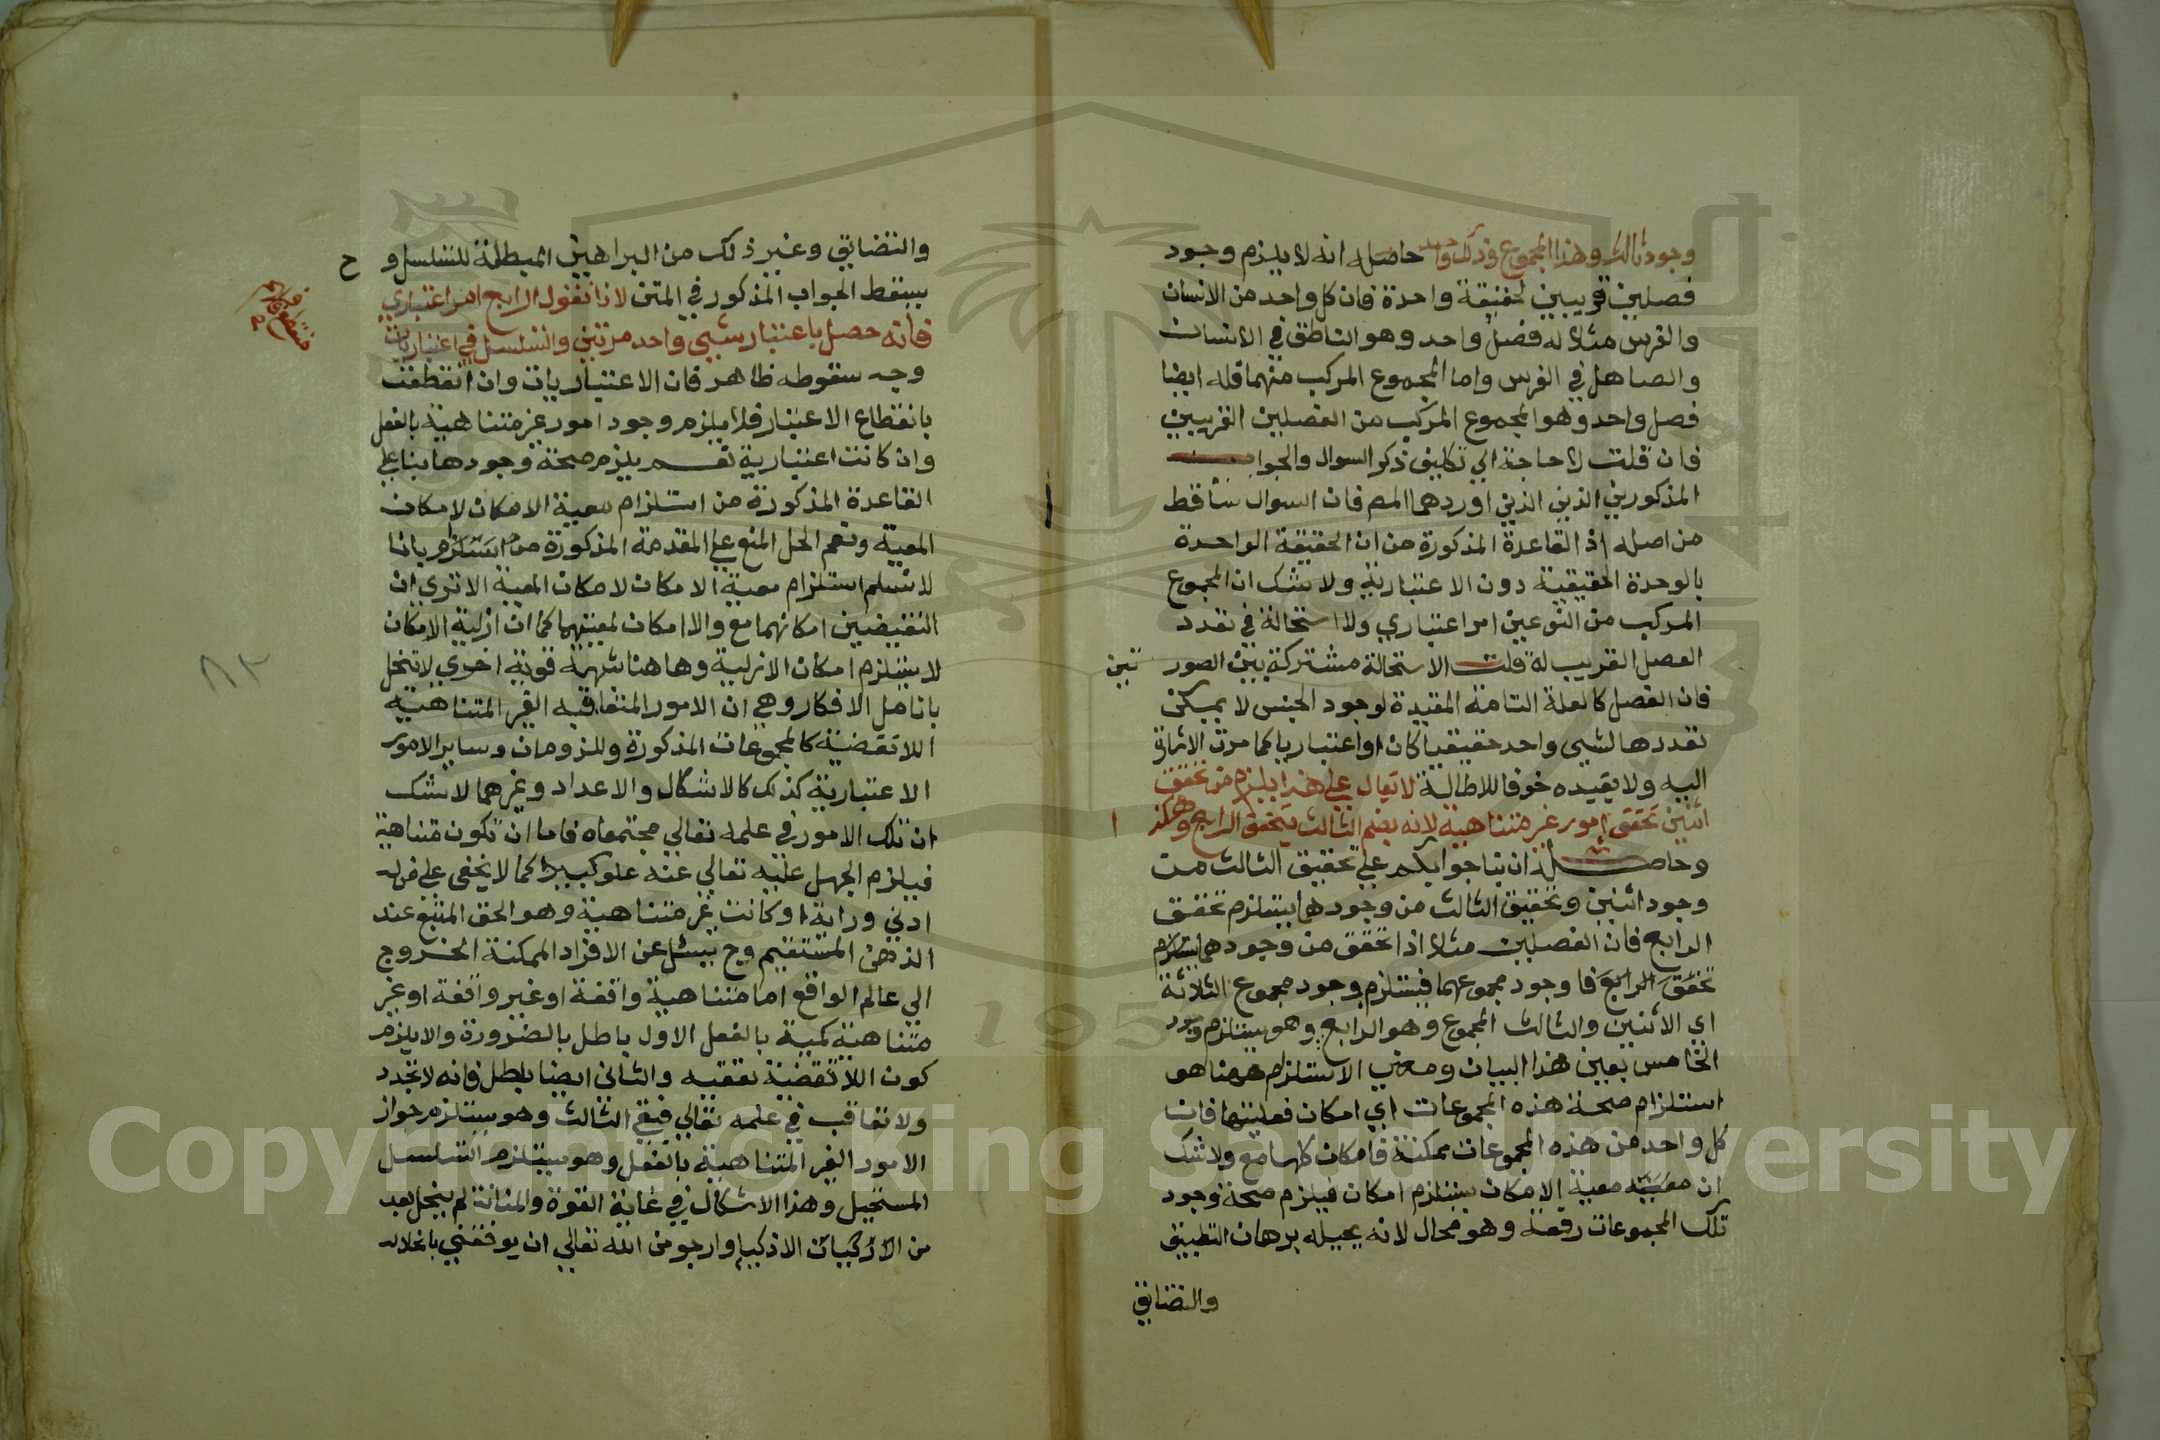 وجود ثالث وهذا المجموع وذلك واحد حاصله انه لا يلزم وجود
فصلين قريبين لحقيقة واحدة فان كل واحد من الانسان
والفرس مثلا له فصل واحد وهو الناطق في الانسان
والصاهل في الفرس واما المجموع المركب منهما فله ايضا
فصل واحد وهو المجموع المركب من الفصلين القريبين
فان قلت لا حاجة الي تكليف ذكر السوال والجواب
المذكورين الذين اوردهما المصم فان السوال ساقط
من اصله اذ القاعدة المذكورة من ان الحقيقة الواحدة
بالوحدة الحقيقية دون الاعتبارية ولا شك ان المجموع
المركب من النوعين امر اعتباري ولا استحالة في تعدد
الفصل القريب له قلت الاستحالة مشتركة بين الصور تين
فان الفصل كالعلة التامة المفيدة لوجود الجنس لا يمكن
تعددها لشي واحد حقيقيا كان او اعتباريا كما مرت الاشارة
اليه ولا يفيده خوفا للاطالة لا يقال علي هذا يلزم من تحقق
اثنين تحقق امور غير متناهية لانه بضم الثالث يتحقق الرابع وهكذ ا
وحاصله ان بنا جوابكم علي تحقيق الثالث من
وجود اثنين وتحقيق الثالث من وجودهما يستلزم تحقق
الرابع فان الفصلين مثلا اذا تحقق من وجودهما يستلزم
تحقق الرابع فا وجود مجموعهما فيستلزم وجود مجموع الثلاثة
اي الاثنين والثالث المجموع وهو الرابع وهو يستلزم وجود
الخامس بعين هذا البيان ومعني الاستلزام ههنا هو
استلزام صحة هذه المجموعات اي امكان فعليتها فان
كل واحد من هذه المجموعات ممكنة فامكان كلها مع ولا شك
ان معية معية الامكان يستلزم امكان فيلزم صحة وجود
تلك المجموعات دفعة وهو محال لانه يحيله برهان التطبيق
والتضايق
والتضايق وغير ذلك من البراهين المبطلة للتسلسل و ح
يسقط الجواب المذكور في المتن لانا نقول الرابع امر اعتباري
فانه حصل باعتبار شي واحد مرتين والتسلسل في اعتباريات
وجه سقوطه ظاهر فان الاعتباريات وان انقطعت
بانقطاع الاعتبار فلا يلزم وجود امور غير متناهية بالفعل
وان كانت اعتبارية نعم يلزم صحة وجودها بنا علي
القاعدة المذكورة من استلزام معية الامكان لامكان
المعية ونعم الحل المنع علي المقدمة المذكورة من استلزام بانا
لا نسلم استلزام معية الامكان لامكان المعية الا تري ان
النقيضين امكانهما مع والا امكان لمعيتهما كما ان ازلية الامكان
لا يستلزم امكان الازلية وهاهنا شبهة قوية اخري لا تنحل
بانامل الافكار وهي ان الامور المتعاقبه الغير المتناهيه
اللاتقضية كالمجموعات المذكورة وللزومات وساير الامور
الاعتبارية كذلك كالاشكال والاعداد وغيرهما لا شك
ان تلك الامور في علمه تعالي مجتمعاه فاما ان تكون متناهية
فيلزم الجهل عليه تعالي عنه علوا كبيرا كما لا يخفي علي من له
ادني دراية او كانت غير متناهية وهو الحق المتبع عند
الذهن المستقيم وح يسئل عن الافراد الممكنة الخروج
الي عالم الواقع اما متناهية واقفة او غير واقفة او غير
متناهية كمية بالفعل الاول باطل بالضرورة والا يلزم
كون اللاتقضية تقفيه والثاني ايضا بطل فانه لا تجدد
ولا تعاقب في علمه تعالي فبقي الثالث وهو يستلزم جواز
الامور الغير المتناهية بالفعل وهو يستلزم التسلسل
المستحيل وهذا الاشكال في غاية القوة والمتانة لم ينحل بعد
من الاذكيات الاذكيا وارجو من الله تعالي ان يوفقني بانحلاله
٨٢
Copyright © King Saud University
195